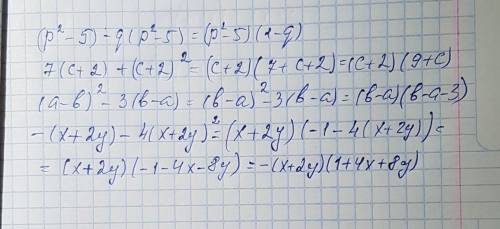 (p²-5)-q(p²-5)=(p²-5)(1-q)
7(c+2)+(c+2)²=(c+2)(7+c+2)=(c+2)(9+c)
(a-в)²-3(в-a)=(в-a)²-3(в-a)=(в-a)(в-a-3)
-(x+2y)-4(x+2y)²=(x+2y)(-1-4(x+2y))=
=(x+2y)(-1-4x-8y)=-(x+2y)(1+4x+8y)